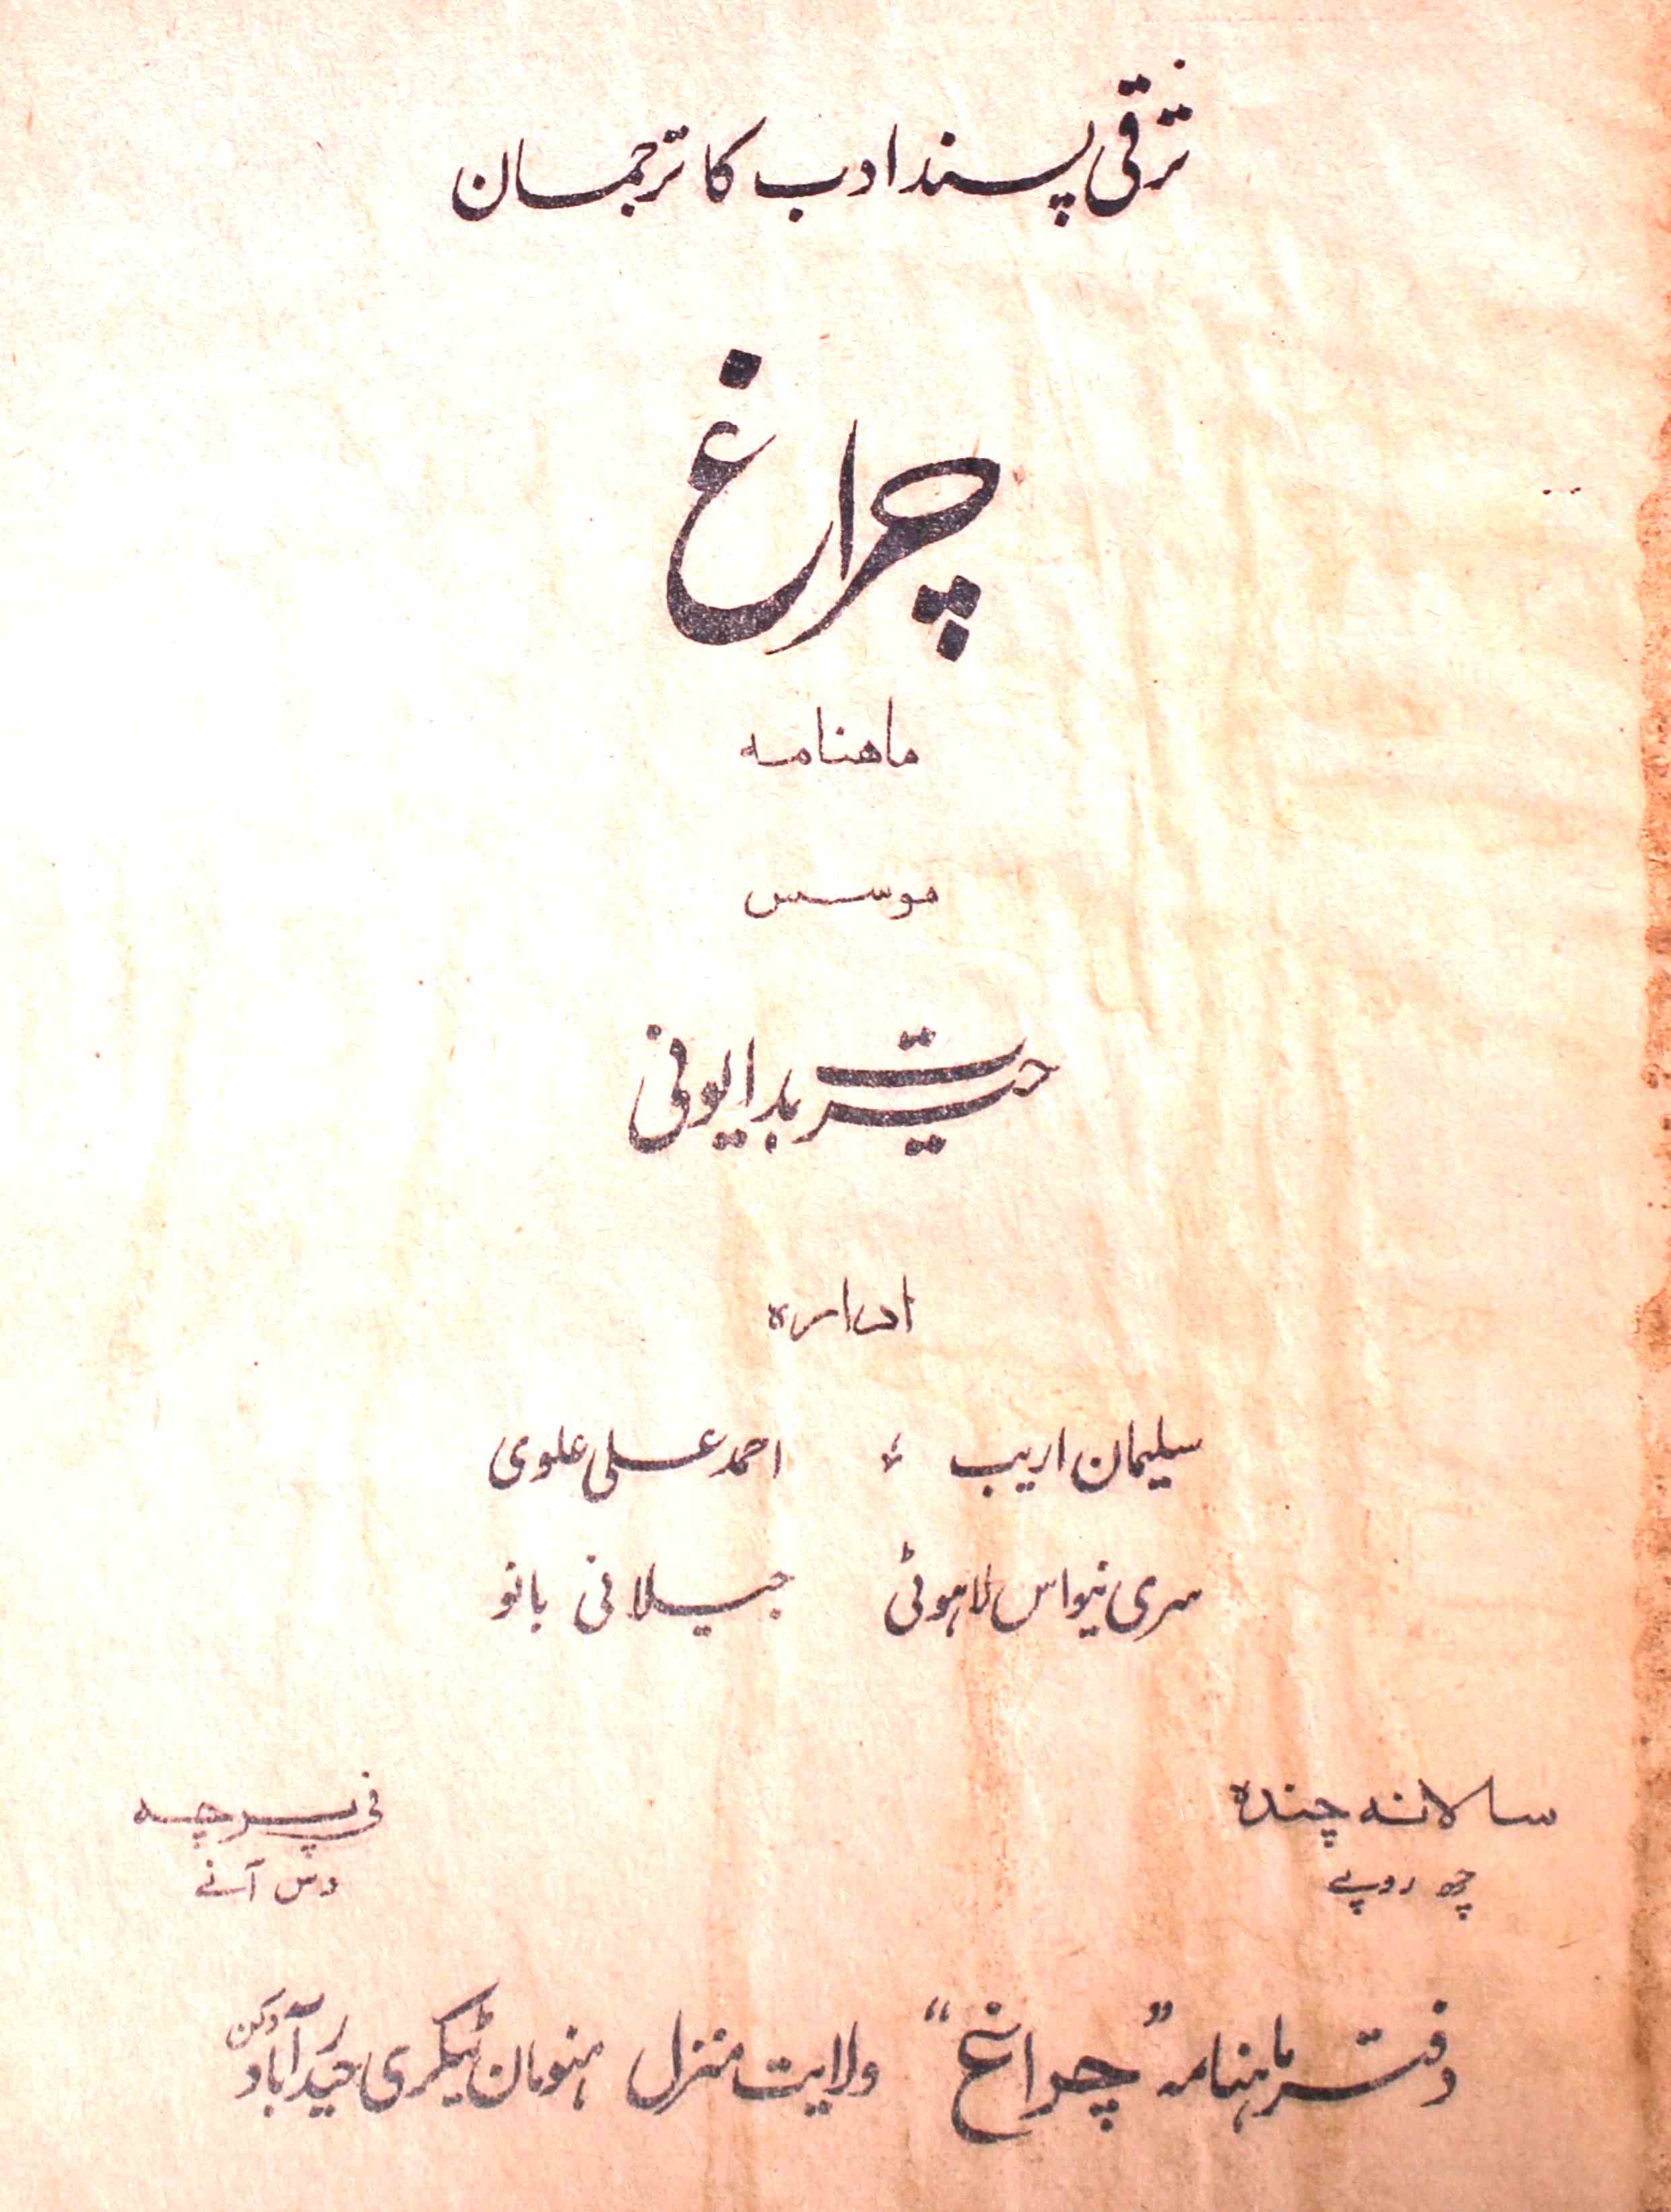 ترقی پسند ادب کا ترجمان
چراغ
ماهنامہ
موسس
حیرت بدایونی
ادارہ
سلیمان اریب * احمد علی علوی
سری نیواس لاہوٹی جیلانی بانو
سالانہ چندہ فی پرچہ
چھ روپے دس آنے
دفتر ماہنامہ "چراغ" ولایت منزل ہنومان ٹیکری حیدرآباد دکن